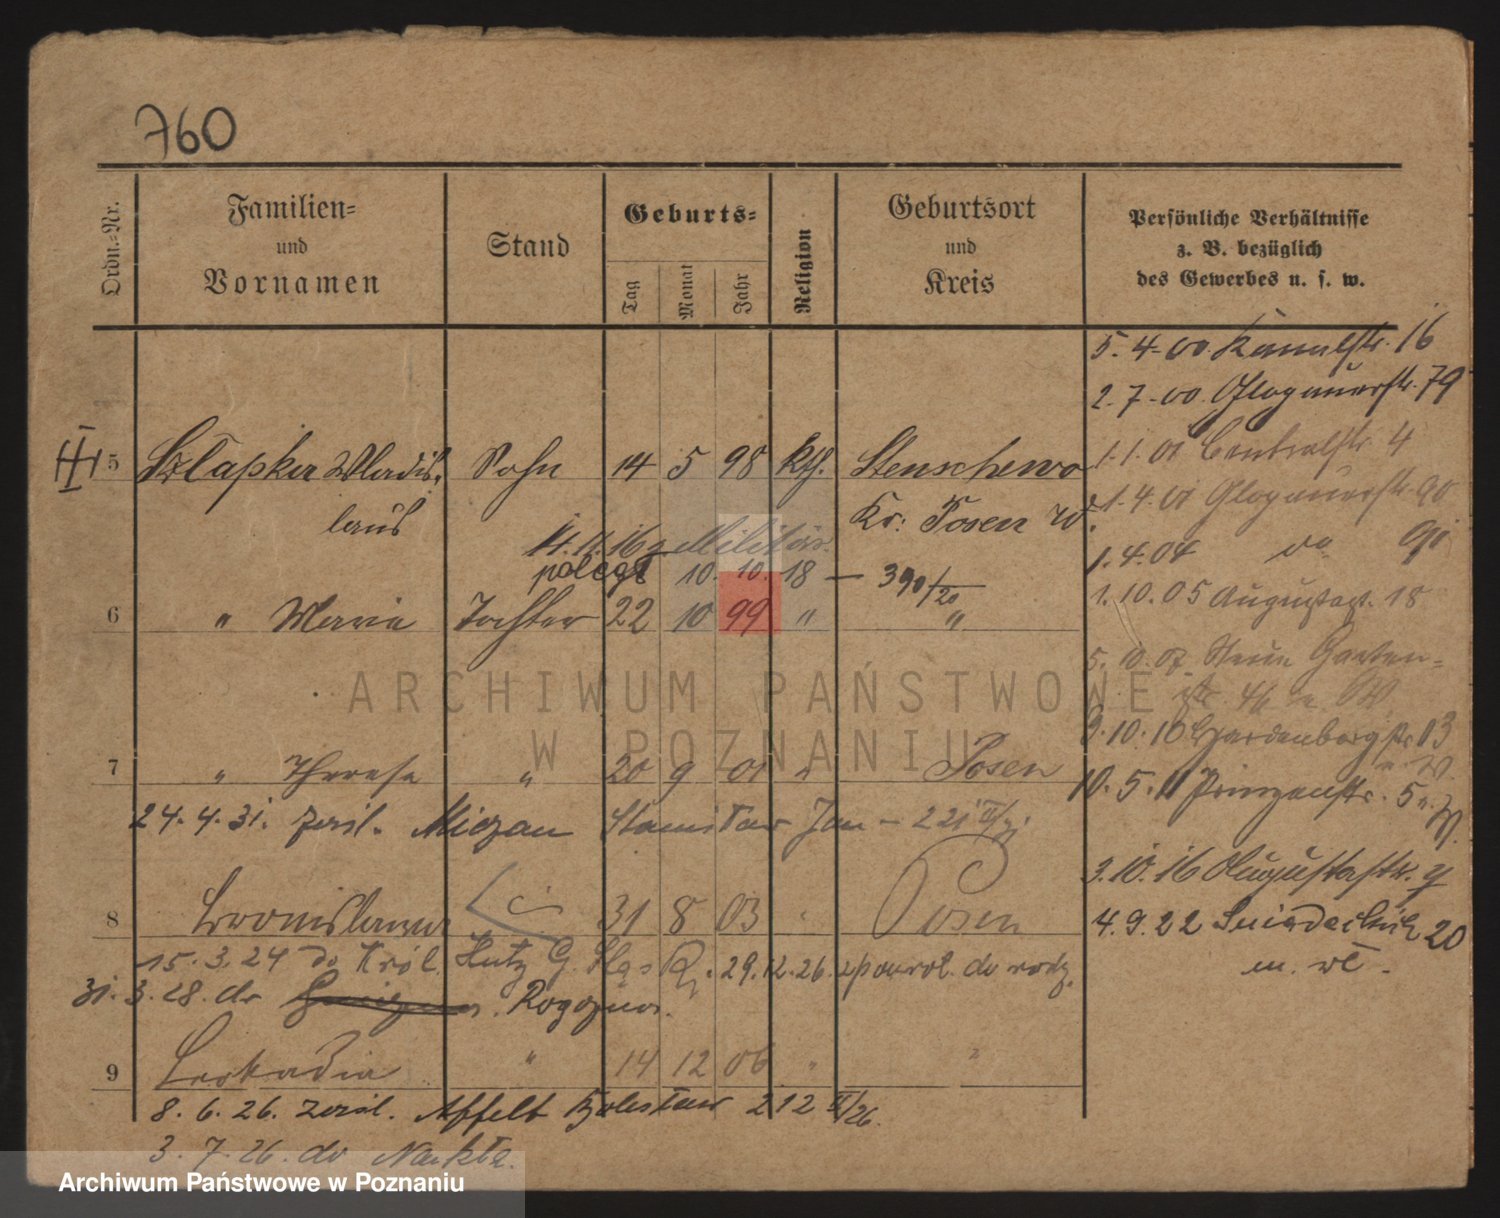 760
Ordn.=Nr.
Familien=
und
Vornamen
Stand
Geburts=
Tag
Monat
Jahr
Religion
Geburtsort
und
Kreis
Persönliche Verhältnisse
z. B. bezüglich
des Gewerbes u. s. w.
5. 4. 00. Kanalstr. 16
2. 7. 00. Glogauerstr. 79
1. 1. 01 Centralstr 4
5 Szłapka Wladis= Sohn 14 5 98 kth. Stenschewo
laus Kr: Posen W.
1. 4. 01 Glogauerstr. 90
14. 11. 16 z. Militär.
1. 4. 04 do 90
poległ 10. 10. 18 — 390/20
1. 10. 05 Augustast. 18
6 " Maria Tochter 22 10 99 " "
5. 10. 07. Neue Garten=
str.
ARCHIWUM PAŃSTWOWE
W POZNANIU
3. 10. 10 Hardenbergstr. 13
7 " Therese " 20 9 01 " Posen
10. 5. 11 Prinzenstr. 5
24. 4. 31. zaśl. Mizgan Stanisław Jan — 221
3. 10. 16 Augustastr. 9
8 Bronislawa 31 8 03 " Posen
4. 9. 22 Śniadeckich 20
m. wł.
15. 3. 24 do Król. Huty G. Śląsk 29. 12. 26. zpowrot. do rodz.
31. 3. 28. do Rogoźna.
9 Leokadia " 14 12 06 " "
8. 6. 26. zaśl. Affelt Bolesław 212 II/26.
3. 7. 26. do Nakła.
Archiwum Państwowe w Poznaniu